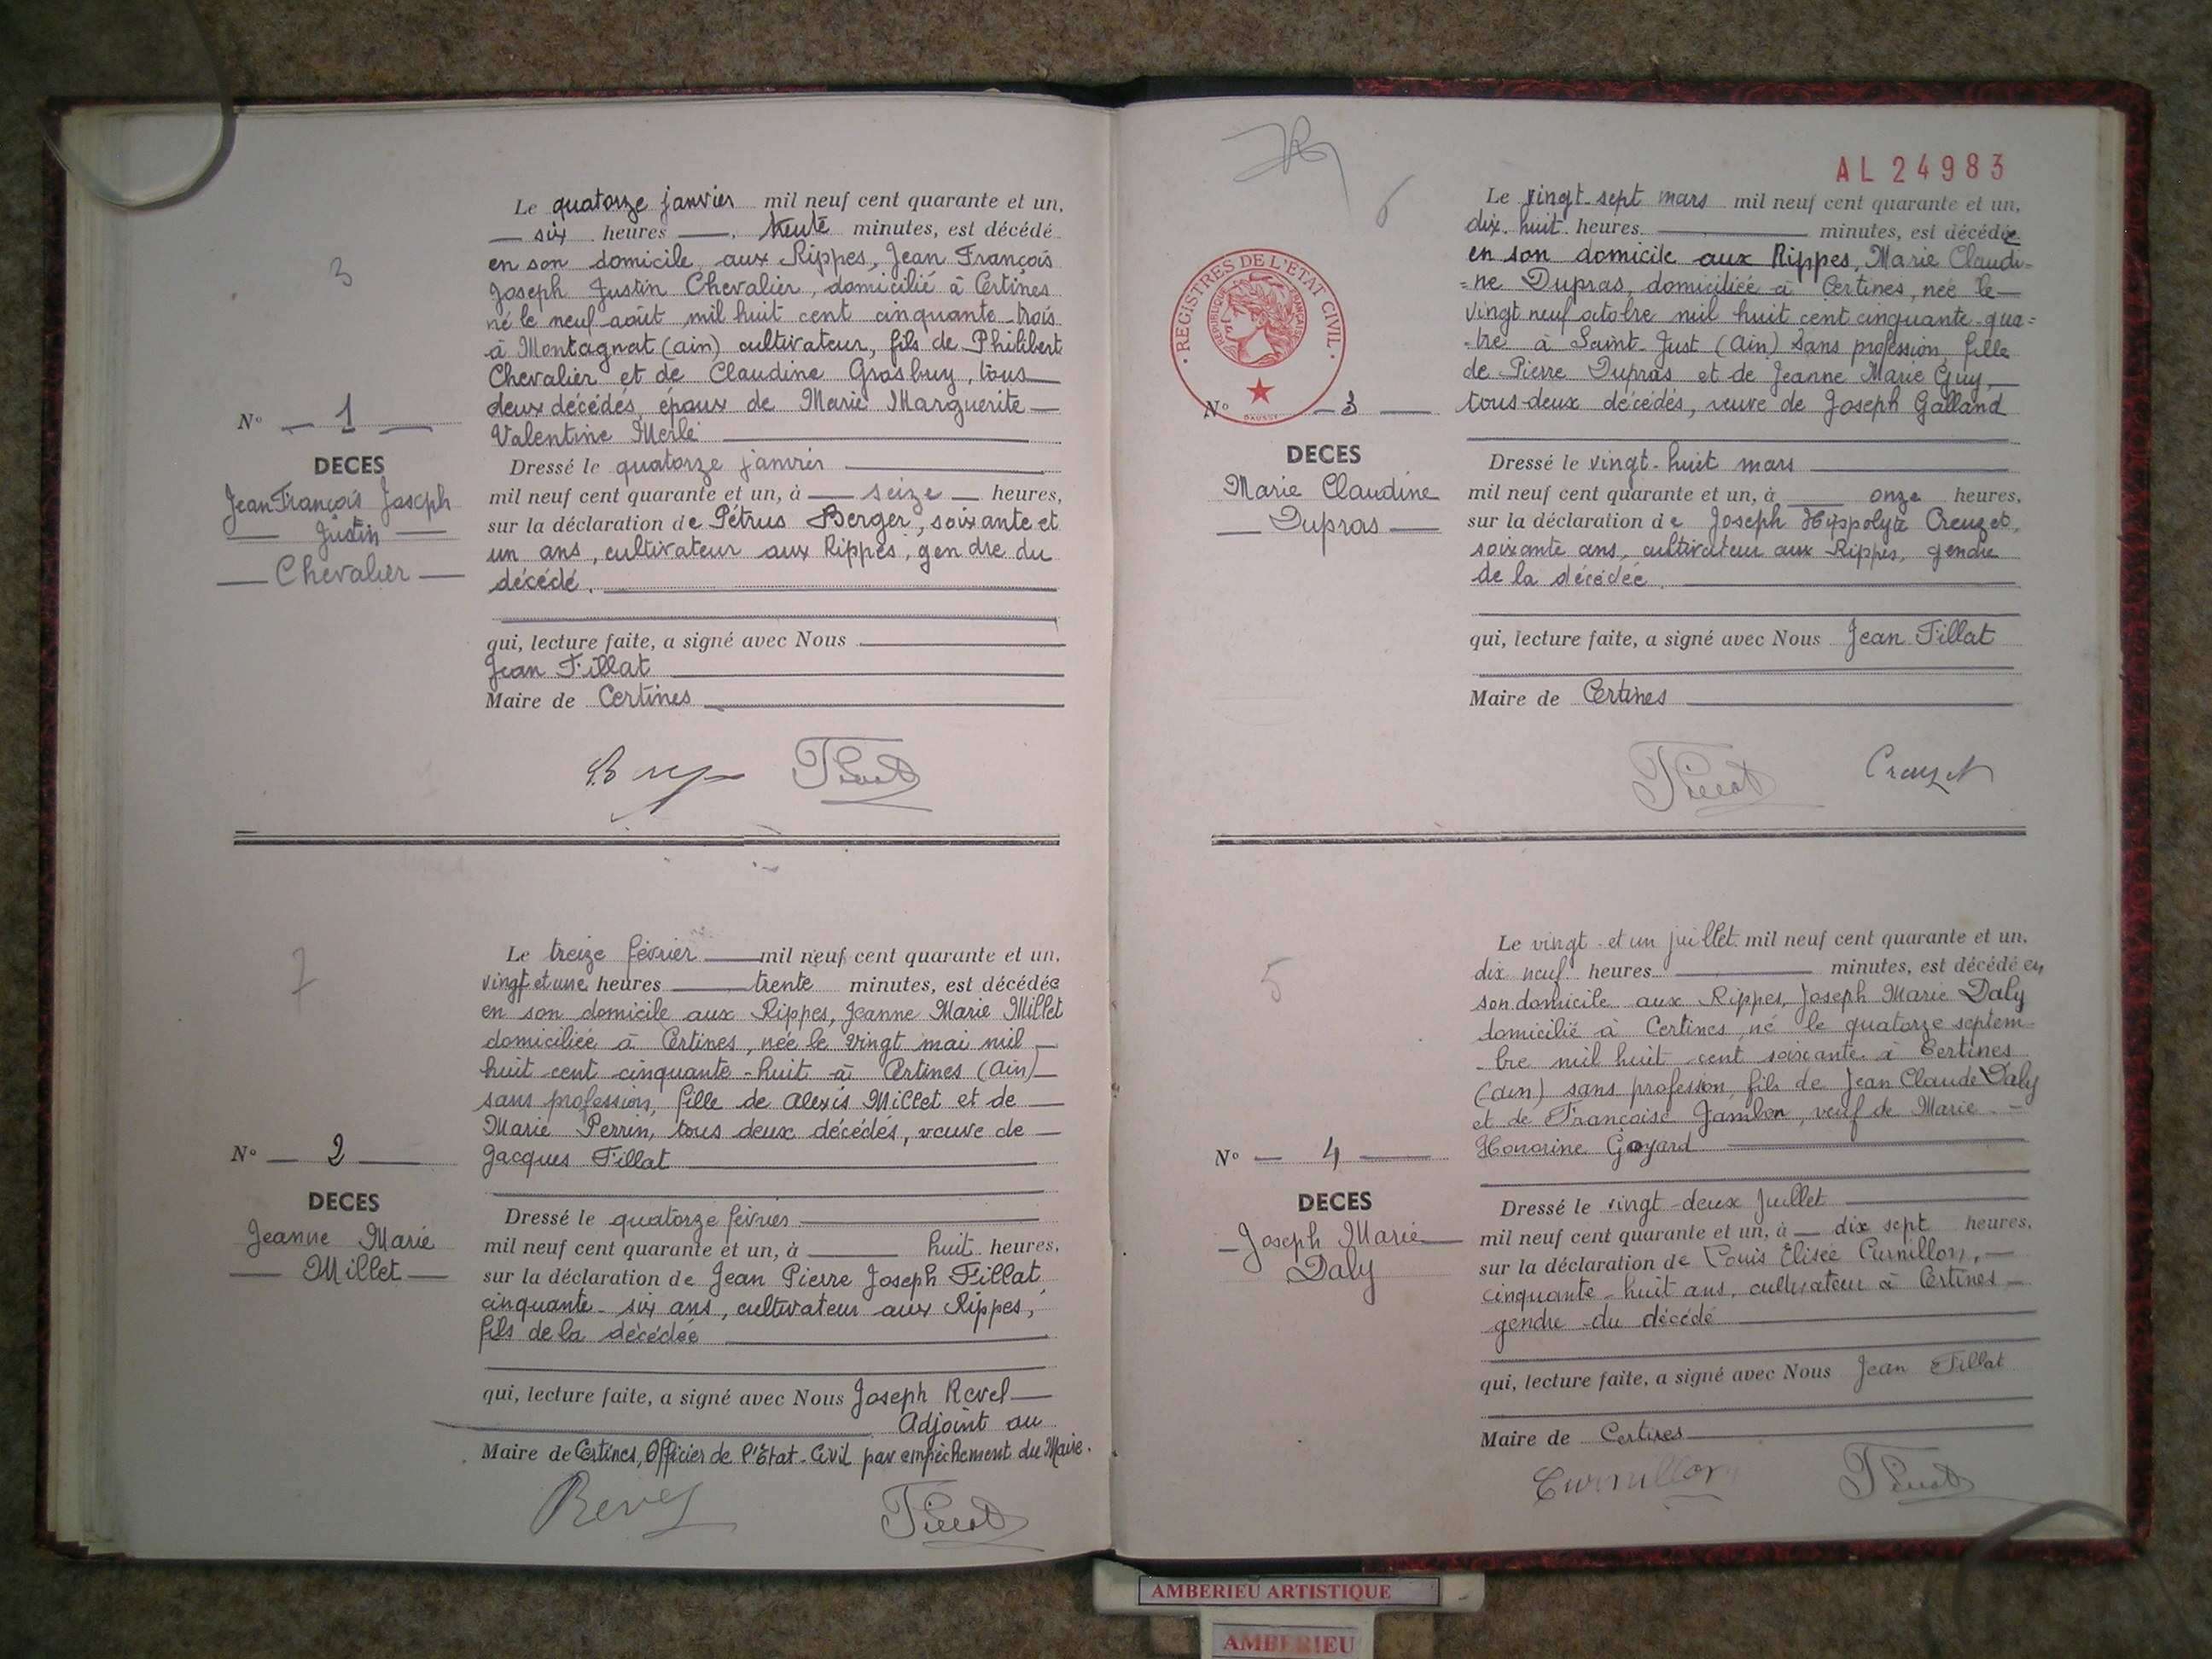 3
Le quatorze janvier mil neuf cent quarante et un,
six heures trente minutes, est décédé
en son domicile aux Rippes, Jean François
Joseph Justin Chevalier, domicilié à Certines
né le neuf août mil huit cent cinquante-trois
à Montagnat (ain) cultivateur, fils de Philibert
Chevalier et de Claudine Grosbuy, tous
deux décédés, époux de Marie Marguerite
Valentine Merle
N° 1
DECES
Jean François Joseph
Justin
Chevalier
Dressé le quatorze janvier
mil neuf cent quarante et un, à seize heures,
sur la déclaration de Pétrus Berger, soixante et
un ans, cultivateur aux Rippes, gendre du
décédé.
qui, lecture faite, a signé avec Nous
Jean Tillat
Maire de Certines
7
Le treize février mil neuf cent quarante et un,
vingt et une heures trente minutes, est décédée
en son domicile aux Rippes, Jeanne Marie Millet
domiciliée à Certines, née le vingt mai mil
huit cent cinquante-huit à Certines (ain)
sans profession, fille de Alexis Millet et de
Marie Perrin, tous deux décédés, veuve de
Jacques Tillat
N° 2
DECES
Jeanne Marie
Millet
Dressé le quatorze février
mil neuf cent quarante et un, à huit heures,
sur la déclaration de Jean Pierre Joseph Tillat
cinquante-six ans, cultivateur aux Rippes,
fils de la décédée
qui, lecture faite, a signé avec Nous Joseph Revel
Adjoint au
Maire de Certines, Officier de l'Etat-Civil par empêchement du Maire.
Revel Tillat
AL 24983
6
Le vingt-sept mars mil neuf cent quarante et un,
dix-huit heures minutes, est décédée
en son domicile aux Rippes, Marie Claudi-
=ne Dupras, domiciliée à Certines, née le
vingt neuf octobre mil huit cent cinquante-qua=
-tre à Saint-Just (ain) sans profession, fille
de Pierre Dupras et de Jeanne Marie Guy,
tous deux décédés, veuve de Joseph Galland
REGISTRES DE L'ETAT CIVIL
REPUBLIQUE FRANÇAISE
N° 3
DECES
Marie Claudine
Dupras
Dressé le vingt-huit mars
mil neuf cent quarante et un, à onze heures,
sur la déclaration de Joseph Hippolyte Creuzet,
soixante ans, cultivateur aux Rippes, gendre
de la décédée.
qui, lecture faite, a signé avec Nous Jean Tillat
Maire de Certines
Tillat Creuzet
5
Le vingt-et un juillet mil neuf cent quarante et un,
dix neuf heures minutes, est décédé en
son domicile aux Rippes, Joseph Marie Daly
domicilié à Certines, né le quatorze septem-
-bre mil huit cent soixante à Certines
(ain) sans profession, fils de Jean Claude Daly
et de Françoise Jambon, veuf de Marie
Honorine Goyard
N° 4
DECES
Joseph Marie
Daly
Dressé le vingt-deux juillet
mil neuf cent quarante et un, à dix sept heures,
sur la déclaration de Louis Elisée Curnillon,
cinquante-huit ans, cultivateur à Certines
gendre du décédé
qui, lecture faite, a signé avec Nous Jean Tillat
Maire de Certines
Curnillon Tillat
AMBERIEU ARTISTIQUE
AMBERIEU